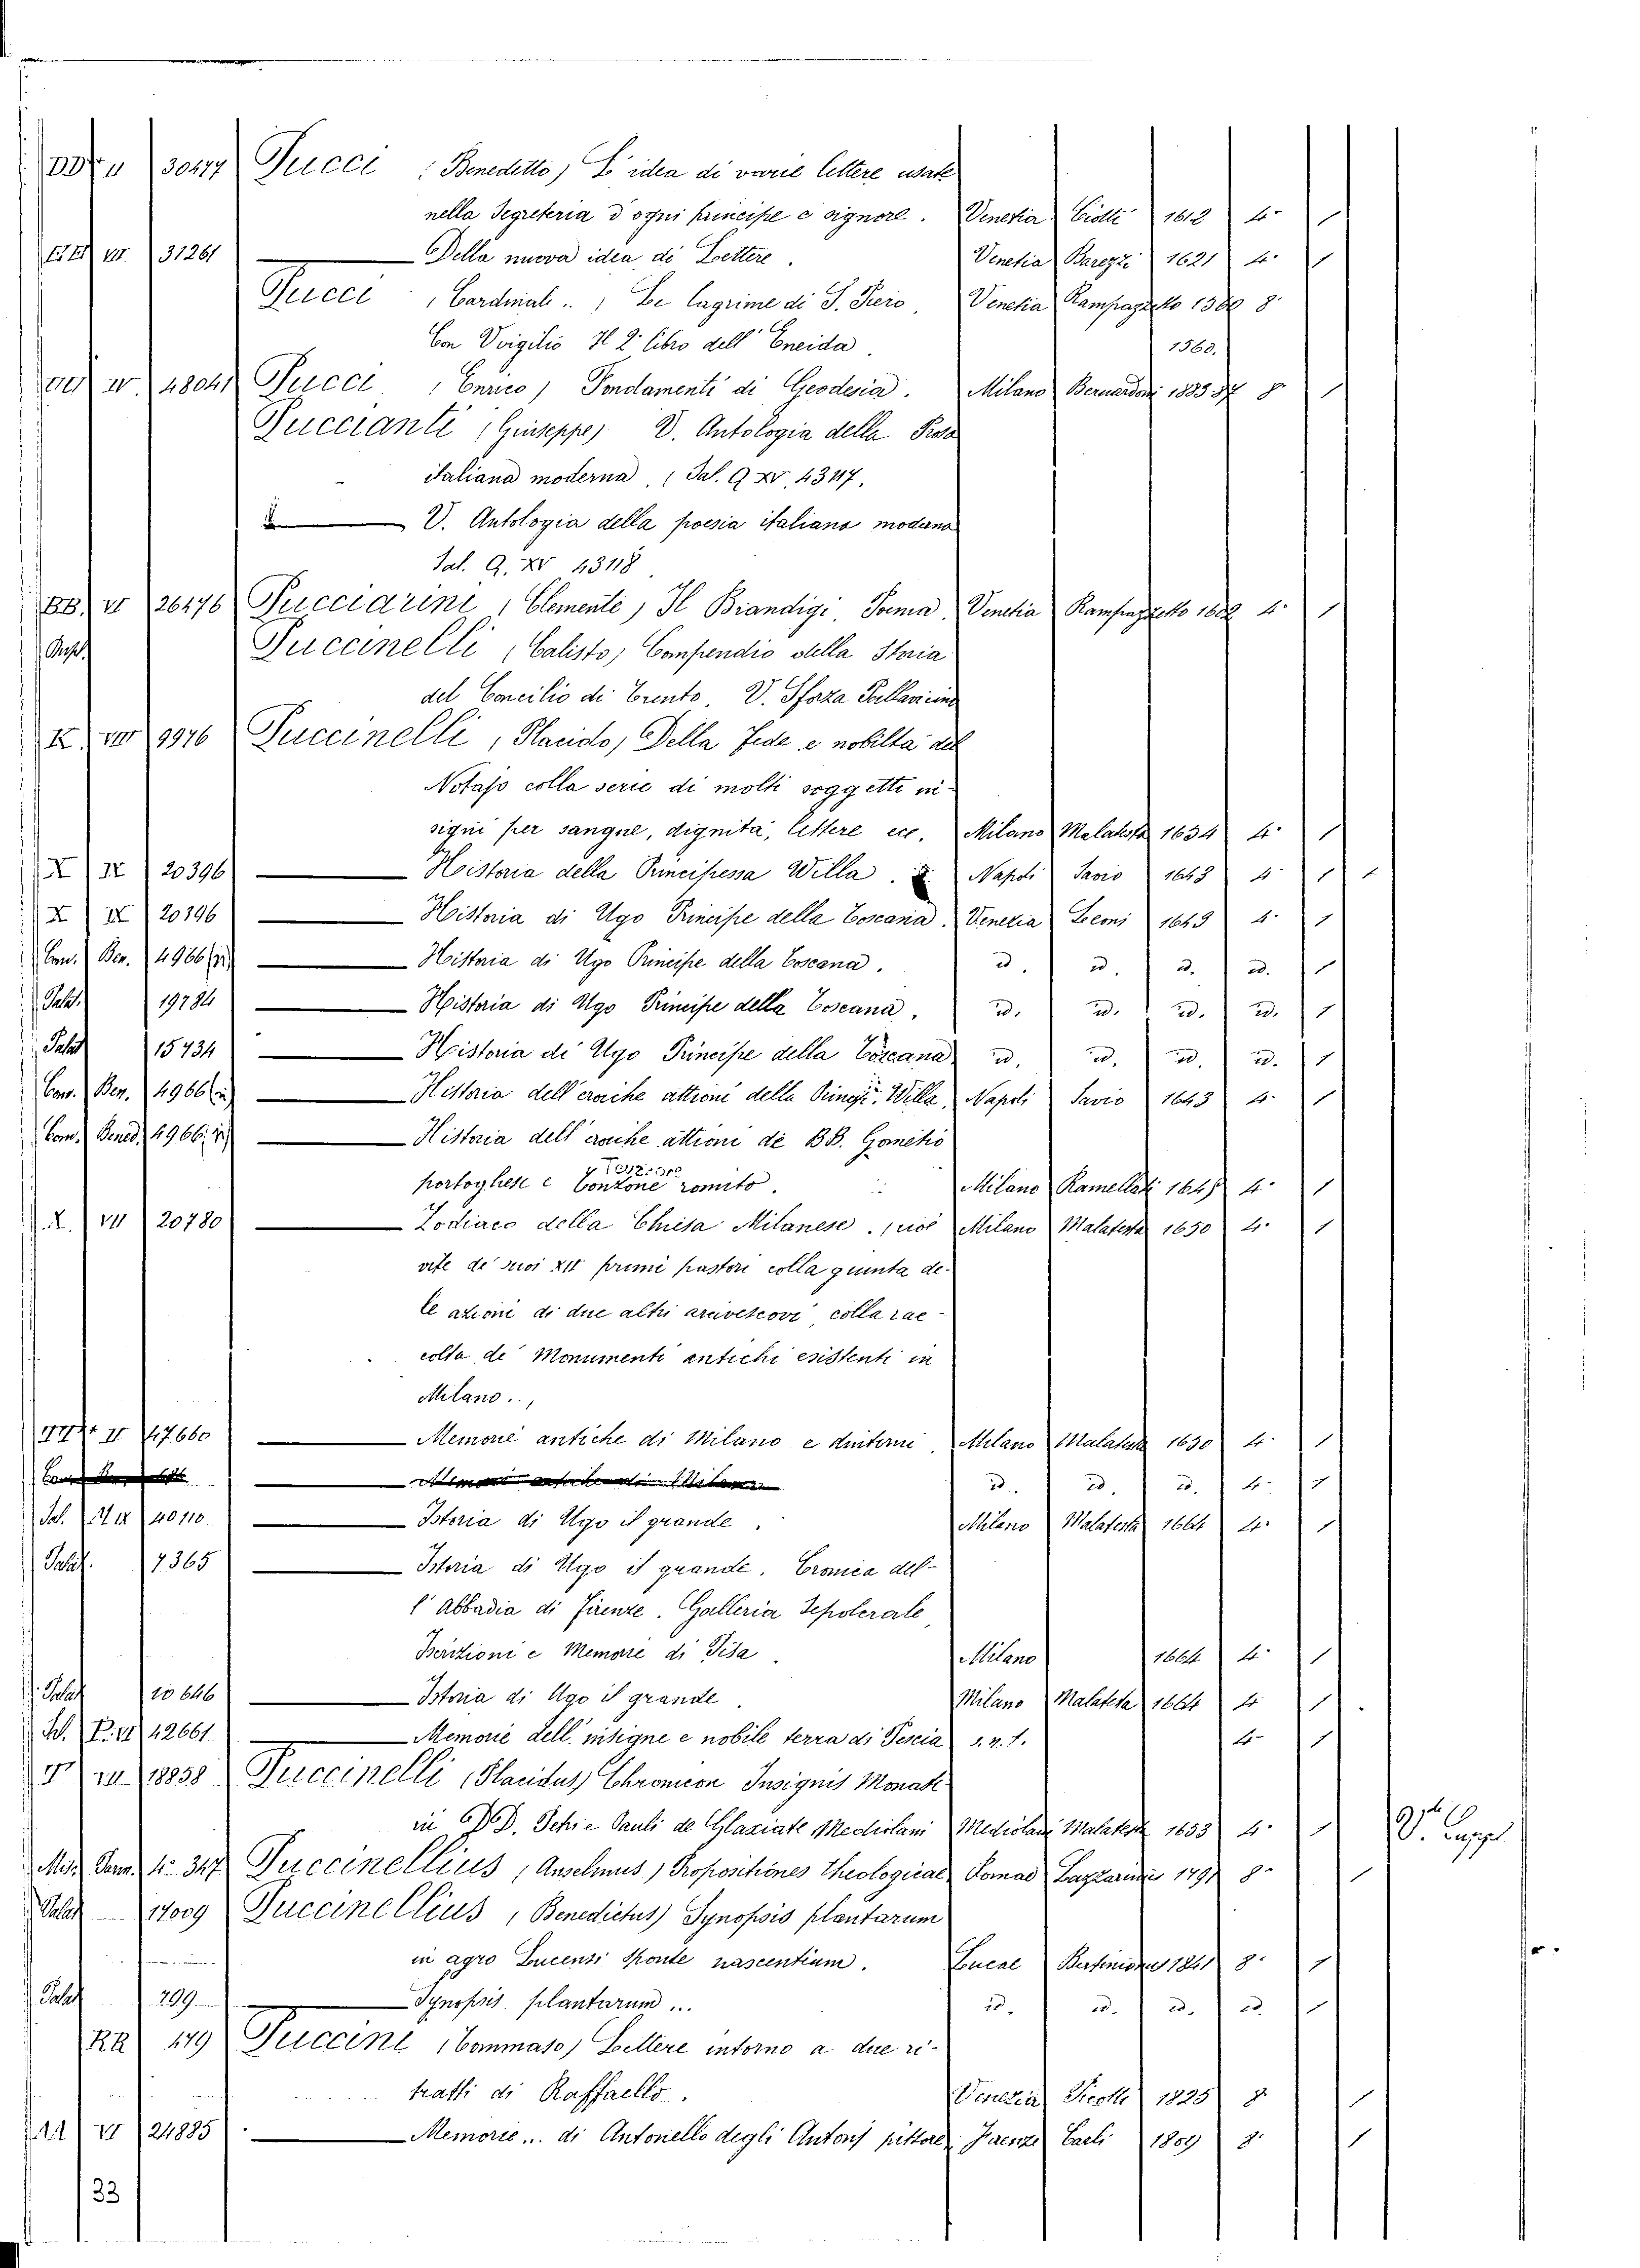 30477 Pucci (Benedetto) L'idea di varie lettere usate
nella Segreteria d'ogni principe e signore. Venetia Ciotti 1612 4° 1
VII 31261 — Della nuova idea di Lettere. Venetia Barezzi 1621 4° 1
Pucci (Cardinale..) Le lagrime di S. Piero. Venetia Rampazetto 1560 8°
Con Virgilio Il 2° libro dell'Eneida. 1560.
IV 48041 Pucci (Enrico) Fondamenti di Geodesia. Milano Bernardoni 1883 87 8° 1
Puccianti (Giuseppe) V. Antologia della Prosa
italiana moderna. (Sal. Q XV. 43117.
— V. Antologia della poesia italiana moderna
Sal. Q. XV 43118
BB. VI 26476 Pucciarini (Clemente) Il Brandigi Poema. Venetia Rampazzetto 1602 4° 1
Puccinelli (Calisto) Compendio della Storia
del Concilio di Trento. V. Sforza Pallavicino
K VIII 9976 Puccinelli (Placido) Della Fede e nobiltà del
Notajo colla serie di molti soggetti in-
signi per sangue, dignità, lettere ecc. Milano Malatesta 1654 4° 1
X IX 20396 — Historia della Principessa Willa. Napoli Savio 1643 4° 1 1
X IX 20396 — Historia di Ugo Principe della Toscana. Venezia Leoni 1643 4° 1
Con. Ben. 4966 — Historia di Ugo Principe della Toscana. id. id. id. id. 1
Palat. 19784 — Historia di Ugo Principe della Toscana. id. id. id. id. 1
Palat 15734 — Historia di Ugo Principe della Toscana id. id. id. id. 1
Con. Ben. 4966 — Historia dell'eroiche attioni della Princip. Willa. Napoli Savio 1643 4° 1
Con. Bened. 4966 — Historia dell'eroiche attioni de BB. Gometio
portoghese e Tenzone romito. Milano Ramellati 1645 4° 1
X. VII 20780 — Zodiaco della Chiesa Milanese. cioè Milano Malatesta 1650 4° 1
vite de suoi XII primi pastori colla giunta de-
le azioni di due altri arcivescovi colla rac-
colta de Monumenti antichi esistenti in
Milano..,
47660 — Memorie antiche di Milano e dintorni. Milano Malatesta 1650 4° 1
id. id. id. 4° 1
Sal. 40110 — Istoria di Ugo il grande. Milano Malatesta 1664 4° 1
Palat. 7365 — Istoria di Ugo il grande. Cronica del-
l'Abbadia di Firenze. Galleria Sepolcrale,
Iscrizioni e Memorie di Pisa. Milano 1664 4° 1
Palat 10646 — Istoria di Ugo il grande. Milano Malatesta 1664 4° 1
42661 — Memorie dell'insigne e nobile terra di Pescia s.n.t. 4° 1
VII 18838 Puccinelli (Placidus) Chronicon Insignis Monast.
in DD. Petri e Pauli de Glaxiate Mediolani Mediolani Malatesta 1653 4° 1
Mis. 4. 347 Puccinellius (Anselmus) Propositiones theologicae Romae Lazzarini 1791 8° 1
Palat 17009 Puccinellius (Benedictus) Synopsis plantarum
in agro Lucensi sponte nascentium. Lucae Bertiniane 1841 8° 1
Palat 799 — Synopsis plantarum... id. id. id. id. 1
RR 479 Puccini (Tommaso) Lettere intorno a due ri-
tratti di Raffaello. Venezia Picotti 1825 8° 1
VI 24885 — Memorie... di Antonello degli Antonj pittore. Firenze Carli 1809 8° 1
33